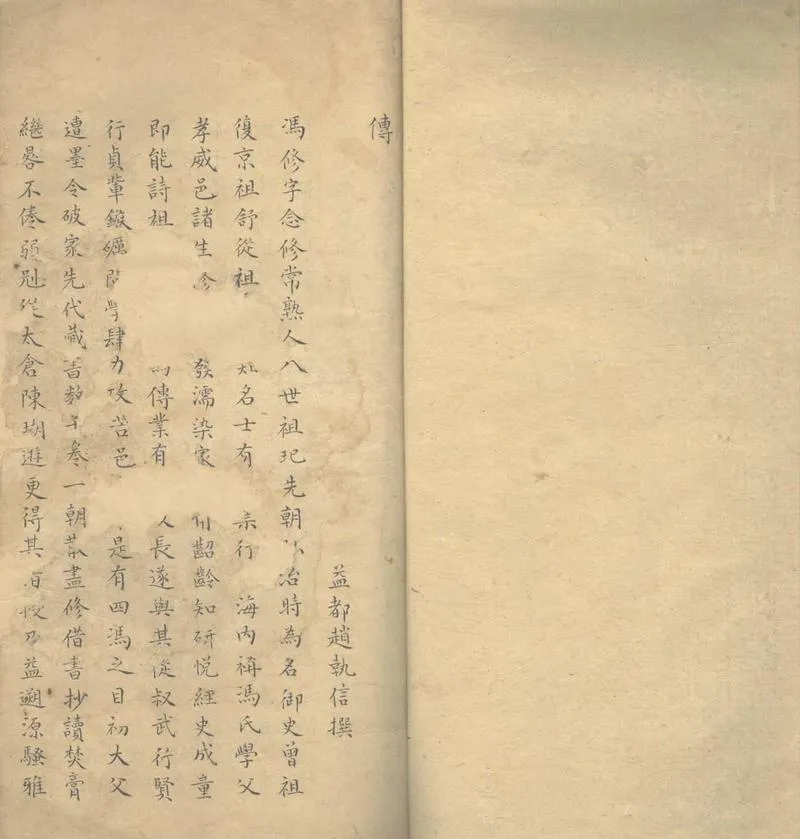 傳
益都趙執信撰
馮修字念修常熟人八世祖玘先朝 治時為名御史曾祖
復京祖舒從祖 名士有 行 海内稱馮氏學父
孝威邑諸生 發濡染家 齠齡知研悅經史成童
即能詩祖 傳業有 人長遂與其從叔武行賢
行貞輩鏃礪 學肆力攻苦邑 是有四馮之目初大父
遭墨令破家先代藏書數 一朝 盡修借書抄讀焚膏
繼晷不倦弱冠從太倉陳瑚遊更得其 益遡源騷雅